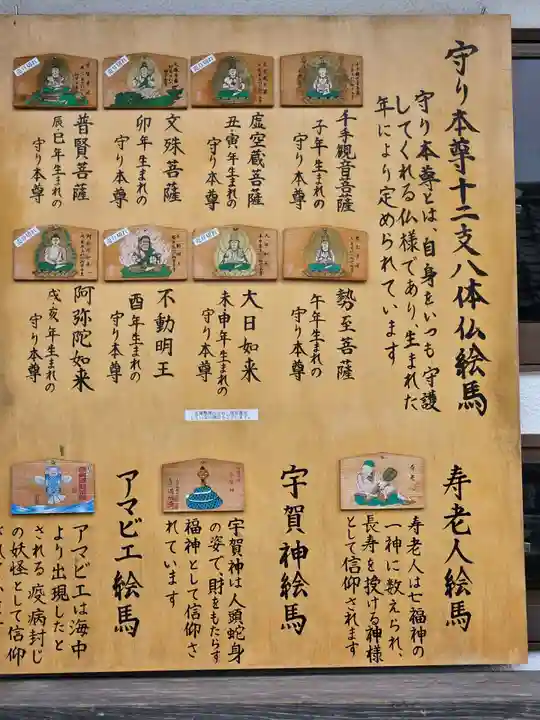 守り本尊十二支八体仏絵馬
守り本尊とは、自身をいつも守護
してくれる仏様であり、生まれた
年により定められています
千手観音菩薩
子年生まれの
守り本尊
虚空蔵菩薩
丑・寅年生まれの
守り本尊
文殊菩薩
卯年生まれの
守り本尊
普賢菩薩
辰・巳年生まれの
守り本尊
勢至菩薩
午年生まれの
守り本尊
大日如来
未申年生まれの
守り本尊
不動明王
酉年生まれの
守り本尊
阿弥陀如来
戌・亥年生まれの
守り本尊
寿老人絵馬
寿老人は七福神の
一神に数えられ、
長寿を授ける神様
として信仰されます
宇賀神絵馬
宇賀神は人頭蛇身
の姿で、財をもたらす
福神として信仰さ
れています
アマビエ絵馬
アマビエは海中
より出現したと
される疫病封じ
の妖怪として信仰